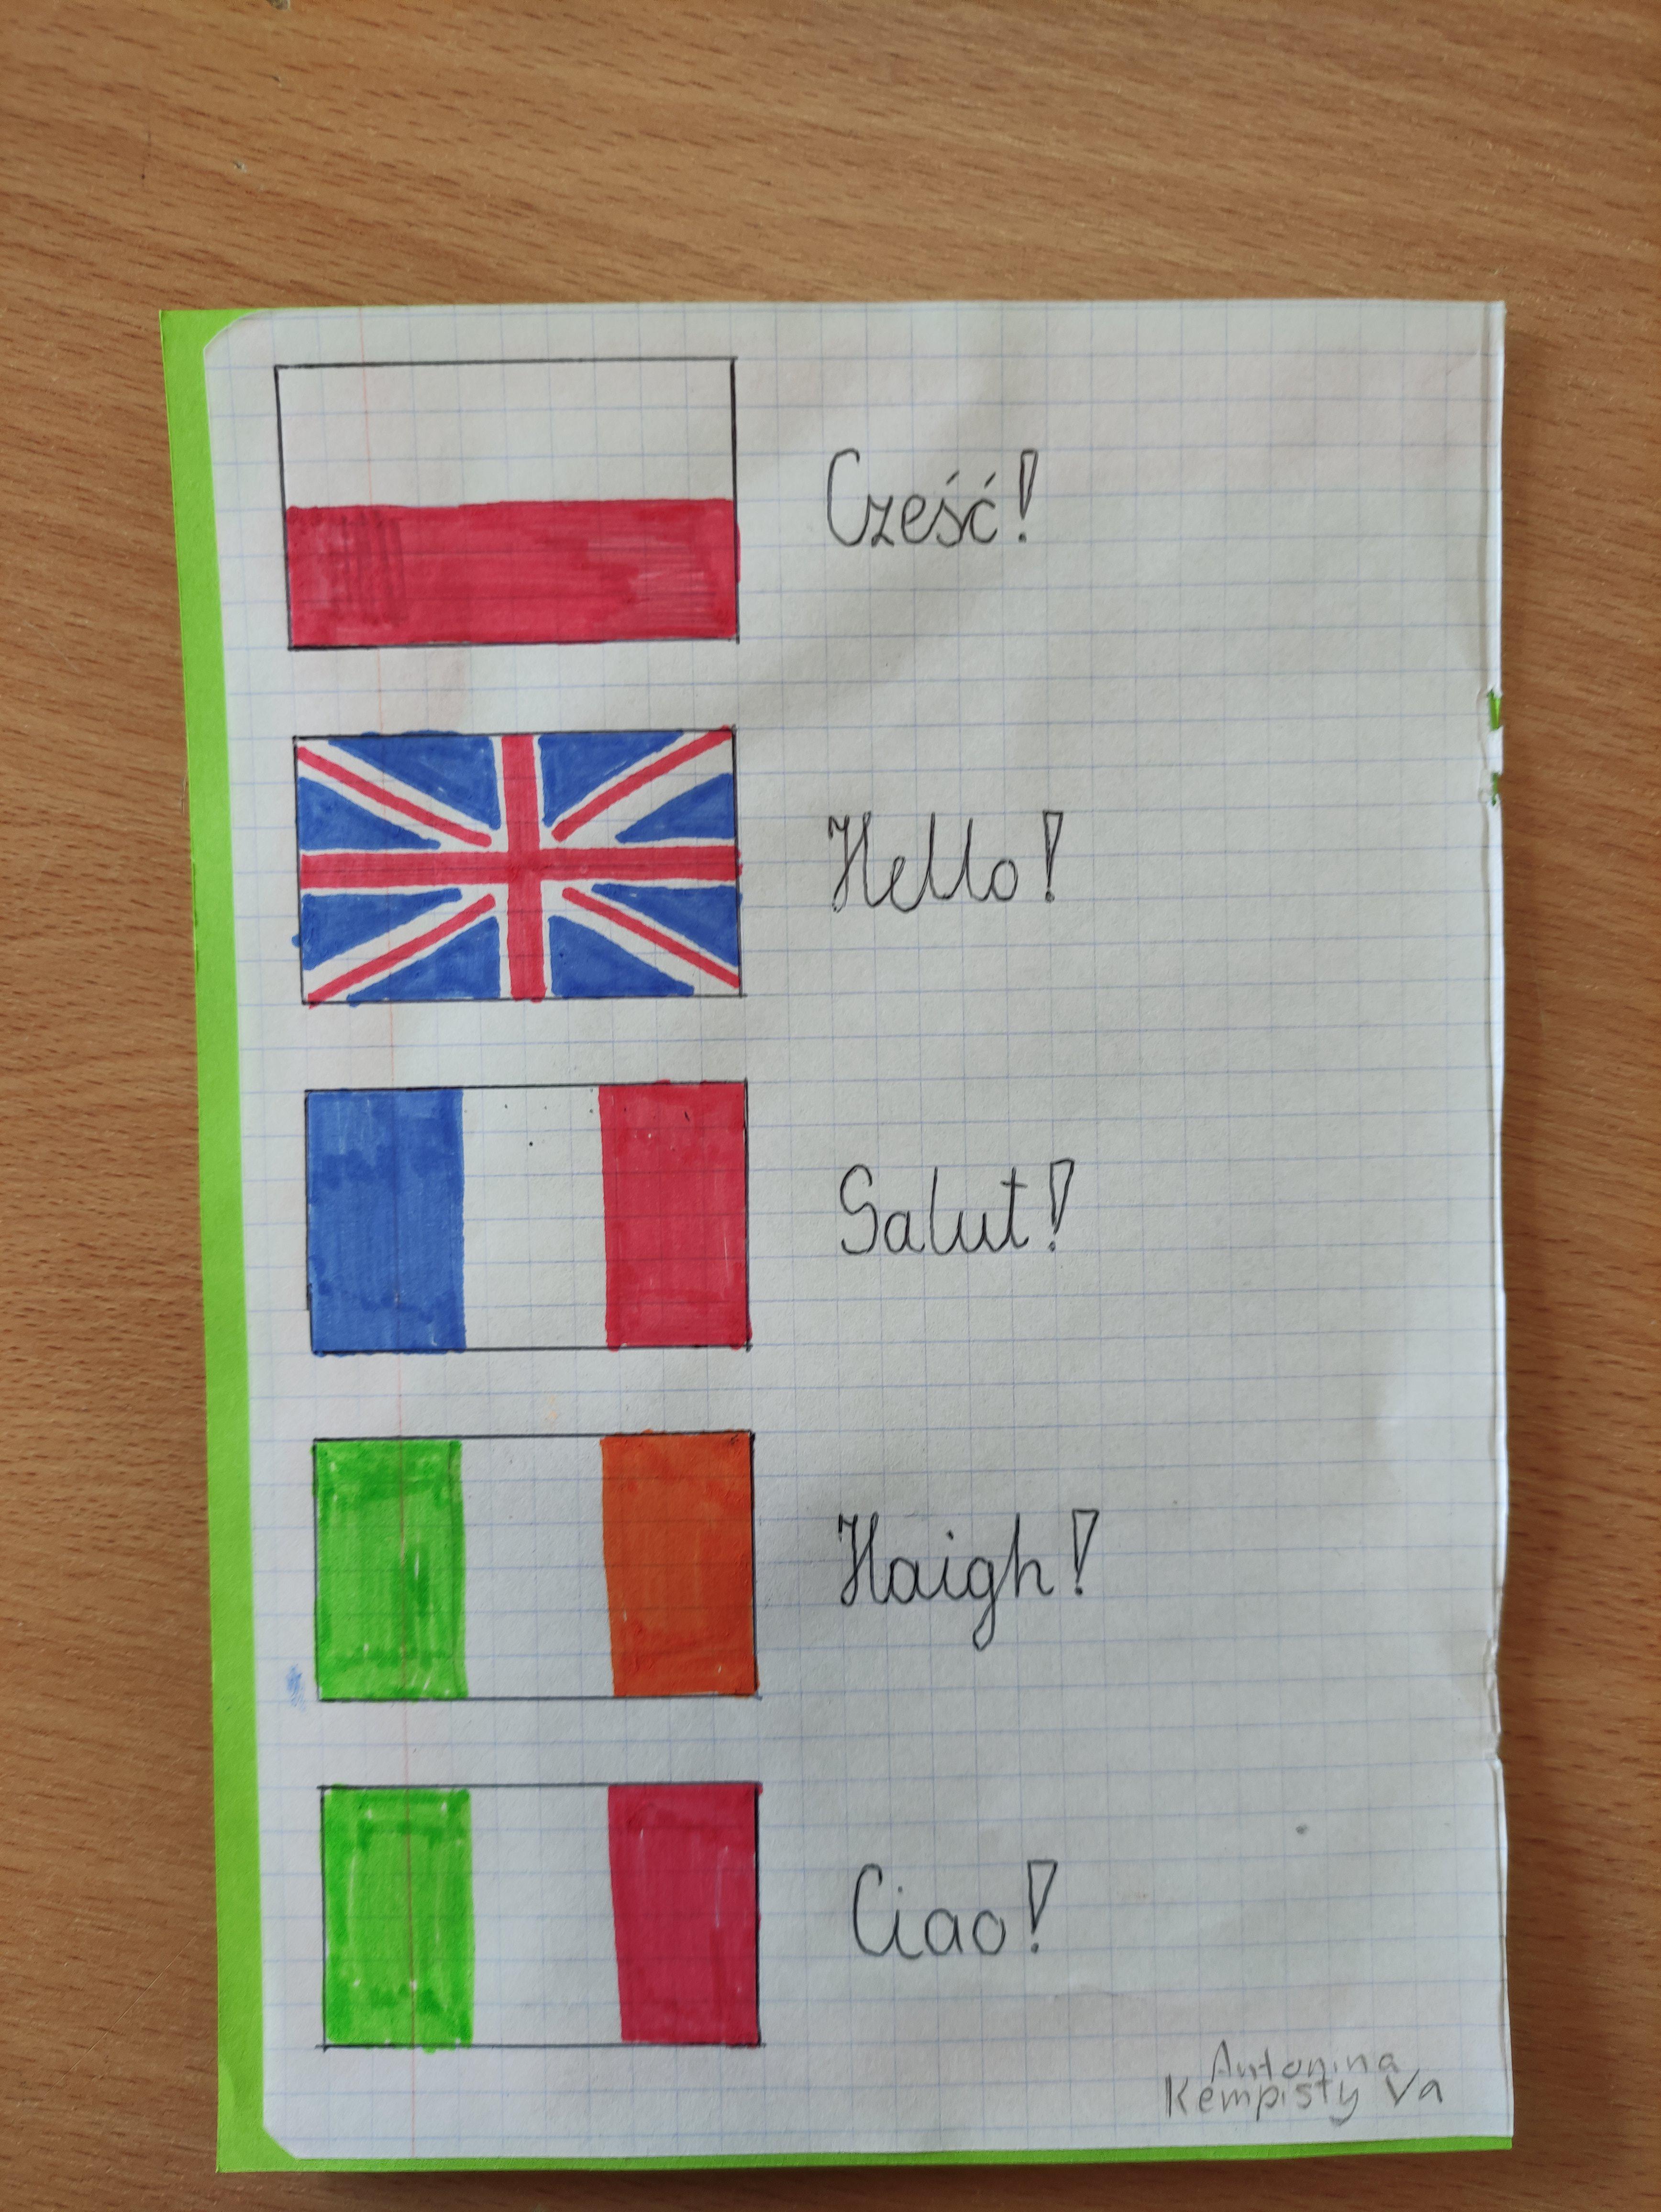 Cześć!
Hello!
Salut!
Haigh!
Ciao!
Antonina
Kempisty Va